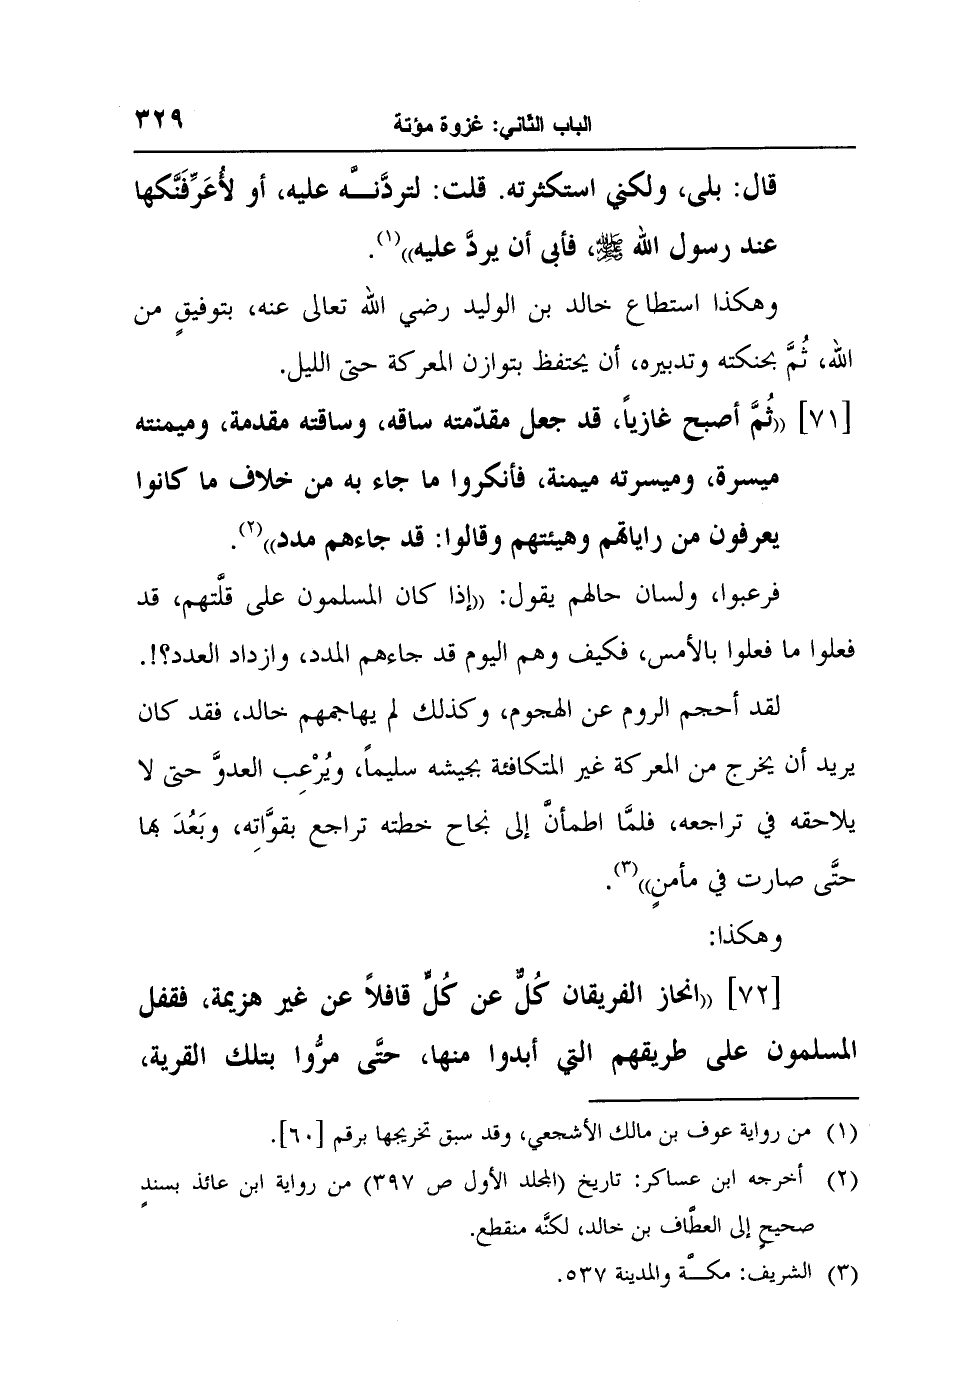 الباب الثاني: غزوة مؤتة ٣٢٩
قال: بلى، ولكني استكثرته. قلت: لتردَّنــه عليه، أو لأُعَرِّفَنَّكها
عند رسول الله ﷺ، فأبى أن يردَّ عليه))(١).
وهكذا استطاع خالد بن الوليد رضي الله تعالى عنه، بتوفيقٍ من
الله، ثُمَّ بحنكته وتدبيره، أن يحتفظ بتوازن المعركة حتى الليل.
[٧١] ((ثُمَّ أصبح غازياً، قد جعل مقدّمته ساقه، وساقته مقدمة، وميمنته
ميسرة، وميسرته ميمنة، فأنكروا ما جاء به من خلاف ما كانوا
يعرفون من راياتهم وهيئتهم وقالوا: قد جاءهم مدد))(٢).
فرعبوا، ولسان حالهم يقول: ((إذا كان المسلمون على قلَّتهم، قد
فعلوا ما فعلوا بالأمس، فكيف وهم اليوم قد جاءهم المدد، وازداد العدد؟!.
لقد أحجم الروم عن الهجوم، وكذلك لم يهاجمهم خالد، فقد كان
يريد أن يخرج من المعركة غير المتكافئة بجيشه سليماً، ويُرْعِب العدوَّ حتى لا
يلاحقه في تراجعه، فلمَّا اطمأنَّ إلى نجاح خطته تراجع بقوَّاتِه، وبَعُدَ بها
حتَّى صارت في مأمنٍ))(٣).
وهكذا:
[٧٢] ((انحاز الفريقان كُلٌّ عن كُلٍّ قافلاً عن غير هزيمة، فقفل
المسلمون على طريقهم التي أبدوا منها، حتَّى مرُّوا بتلك القرية،
(١) من رواية عوف بن مالك الأشجعي، وقد سبق تخريجها برقم [٦٠].
(٢) أخرجه ابن عساكر: تاريخ (المجلد الأول ص ٣٩٧) من رواية ابن عائذ بسندٍ
صحيحٍ إلى العطَّاف بن خالد، لكنَّه منقطع.
(٣) الشريف: مكــَّة والمدينة ٥٣٧.